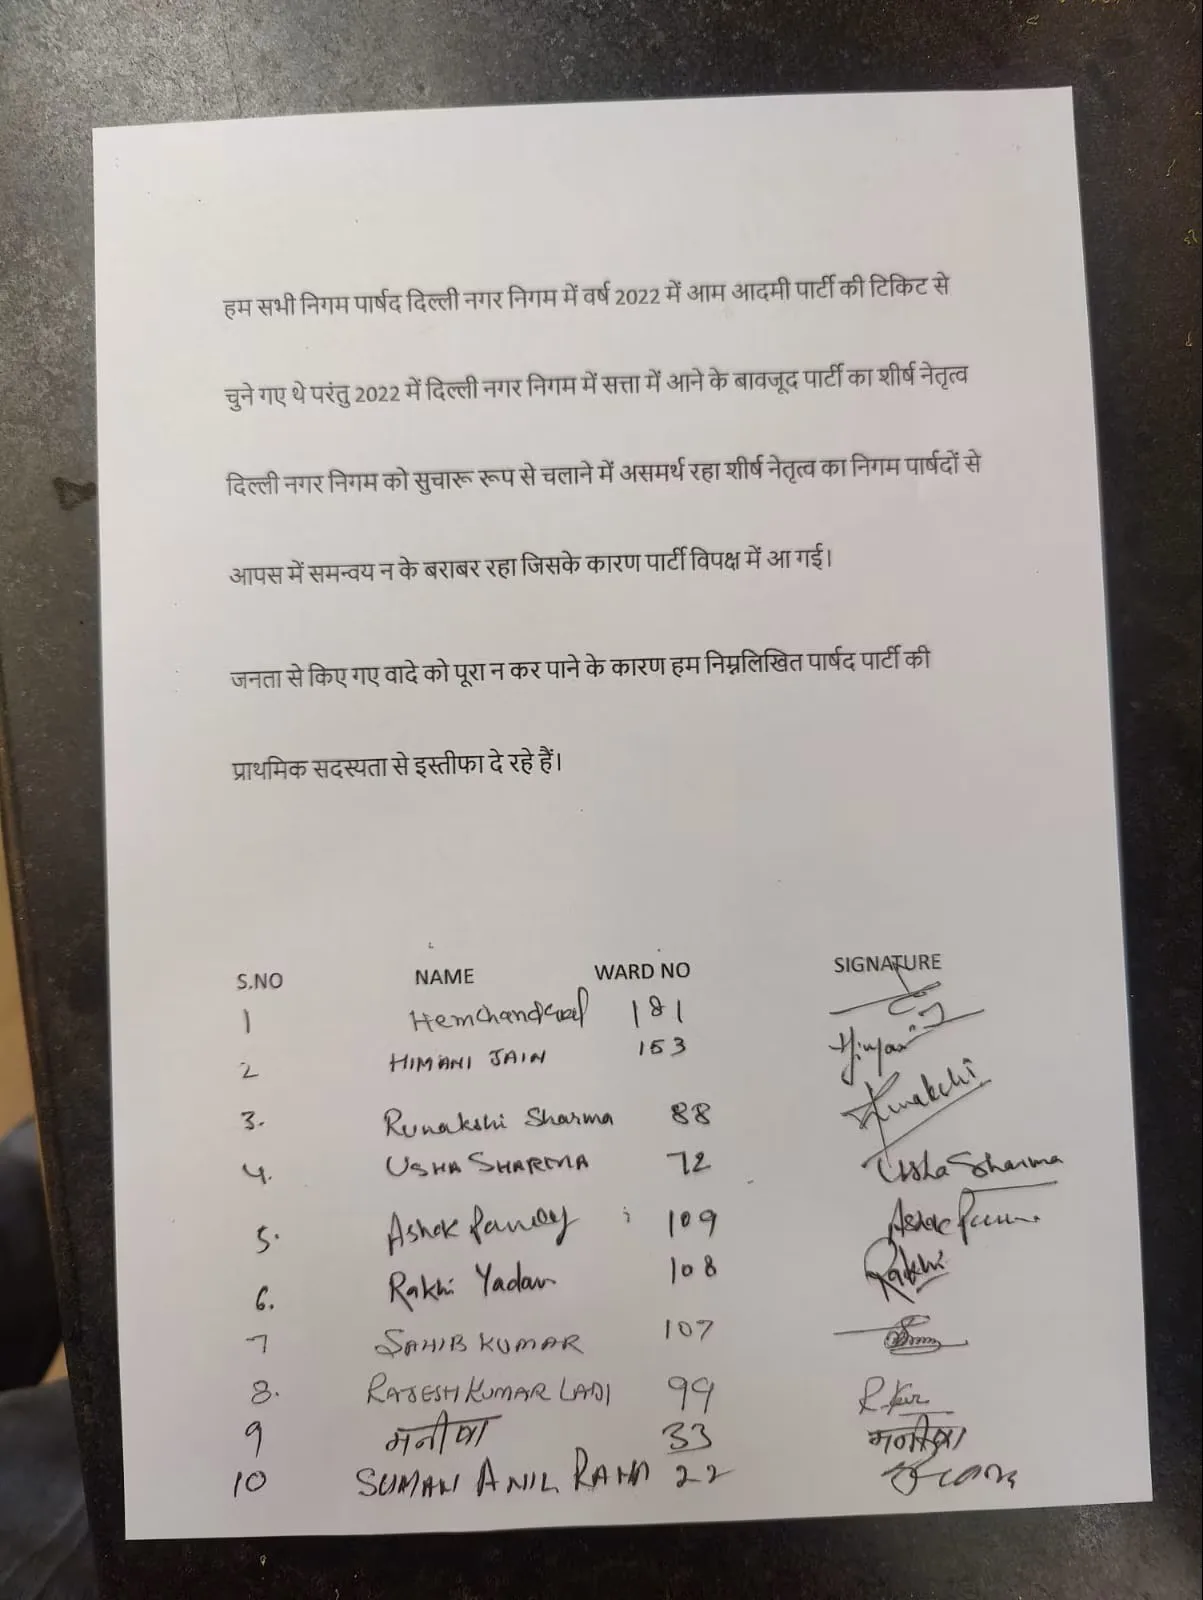 हम सभी निगम पार्षद दिल्ली नगर निगम में वर्ष 2022 में आम आदमी पार्टी की टिकिट से
चुने गए थे परंतु 2022 में दिल्ली नगर निगम में सत्ता में आने के बावजूद पार्टी का शीर्ष नेतृत्व
दिल्ली नगर निगम को सुचारू रूप से चलाने में असमर्थ रहा शीर्ष नेतृत्व का निगम पार्षदों से
आपस में समन्वय न के बराबर रहा जिसके कारण पार्टी विपक्ष में आ गई।
जनता से किए गए वादे को पूरा न कर पाने के कारण हम निम्नलिखित पार्षद पार्टी की
प्राथमिक सदस्यता से इस्तीफा दे रहे हैं।
S.NO NAME WARD NO SIGNATURE
1 181
2 HIMANI JAIN 153
3. Runakshi Sharma 88 Runakshi
4. USHA SHARMA 72 Usha Sharma
5. Ashok Pandey 109
6. Rakhi Yadav 108 Rakhi
7 SAHIB KUMAR 107
8. RAJESH KUMAR LADI 99
9 मनीषा 33 मनीषा
10 SUMAN ANIL RANA 22